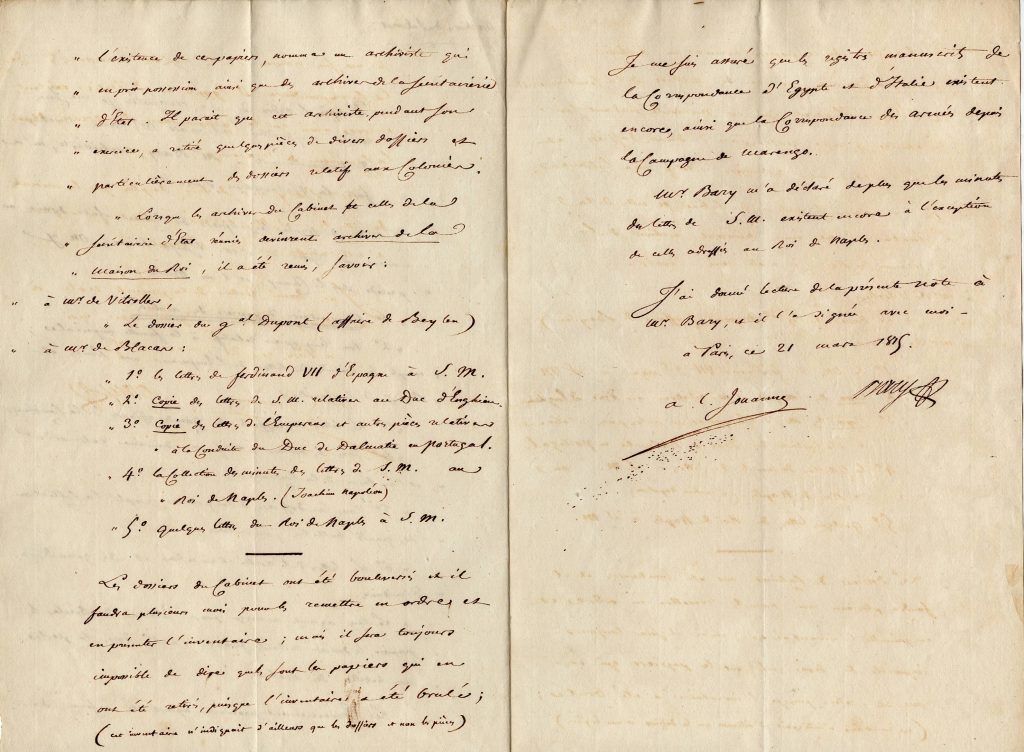 " l'existence de ces papiers, nomma un archiviste qui
" en prit possession, ainsi que des archives de la Secrétairerie
" d'Etat. Il parait que cet archiviste, pendant son
" exercice, a retiré quelques pièces de divers dossiers et
" particulièrement des dossiers relatifs aux Colonies.
" Lorsque les archives du Cabinet et celles de la
" Secrétairerie d'Etat réunis devinrent archives de la
" Maison du Roi, il a été remis, savoir:
" à Mr. de Vitrolles,
" Le dossier du gal Dupont (affaire de Baylen)
" à Mr. de Blacas:
" 1° les lettres de ferdinand VII d'Espagne à S. M.
" 2° Copie des lettres de S. M. relatives au Duc d'Enghien
" 3° Copie des lettres de l'Empereur et autres pièces relatives
" à la Conduite du Duc de Dalmatie en Portugal.
" 4° la Collection des minutes des lettres de S. M. au
" Roi de Naples. (Joachim Napoléon)
" 5° quelques lettres du Roi de Naples à S. M.
Les dossiers du Cabinet ont été bouleversés et il
faudra plusieurs mois pour les remettre en ordre, et
en présenter l'inventaire; mais il sera toujours
impossible de dire quels sont les papiers qui en
ont été retirés, puisque l'inventaire a été brulé;
(cet inventaire n'indiquait d'ailleurs que les dossiers et non les pièces)
Je me suis assuré que les registres manuscrits de
la Correspondance d'Egypte et d'Italie existent
encore, ainsi que la Correspondance des armées depuis
la Campagne de Marengo.
Mr. Bary m'a déclaré de plus que les minutes
des lettres de S. M. existent encore à l'exception
de celles adressées au Roi de Naples.
J'ai donné lecture de la présente note à
Mr. Bary, et il l'a signée avec moi -
à Paris, ce 21 mars 1815.
a. l. Jouanne
Bary